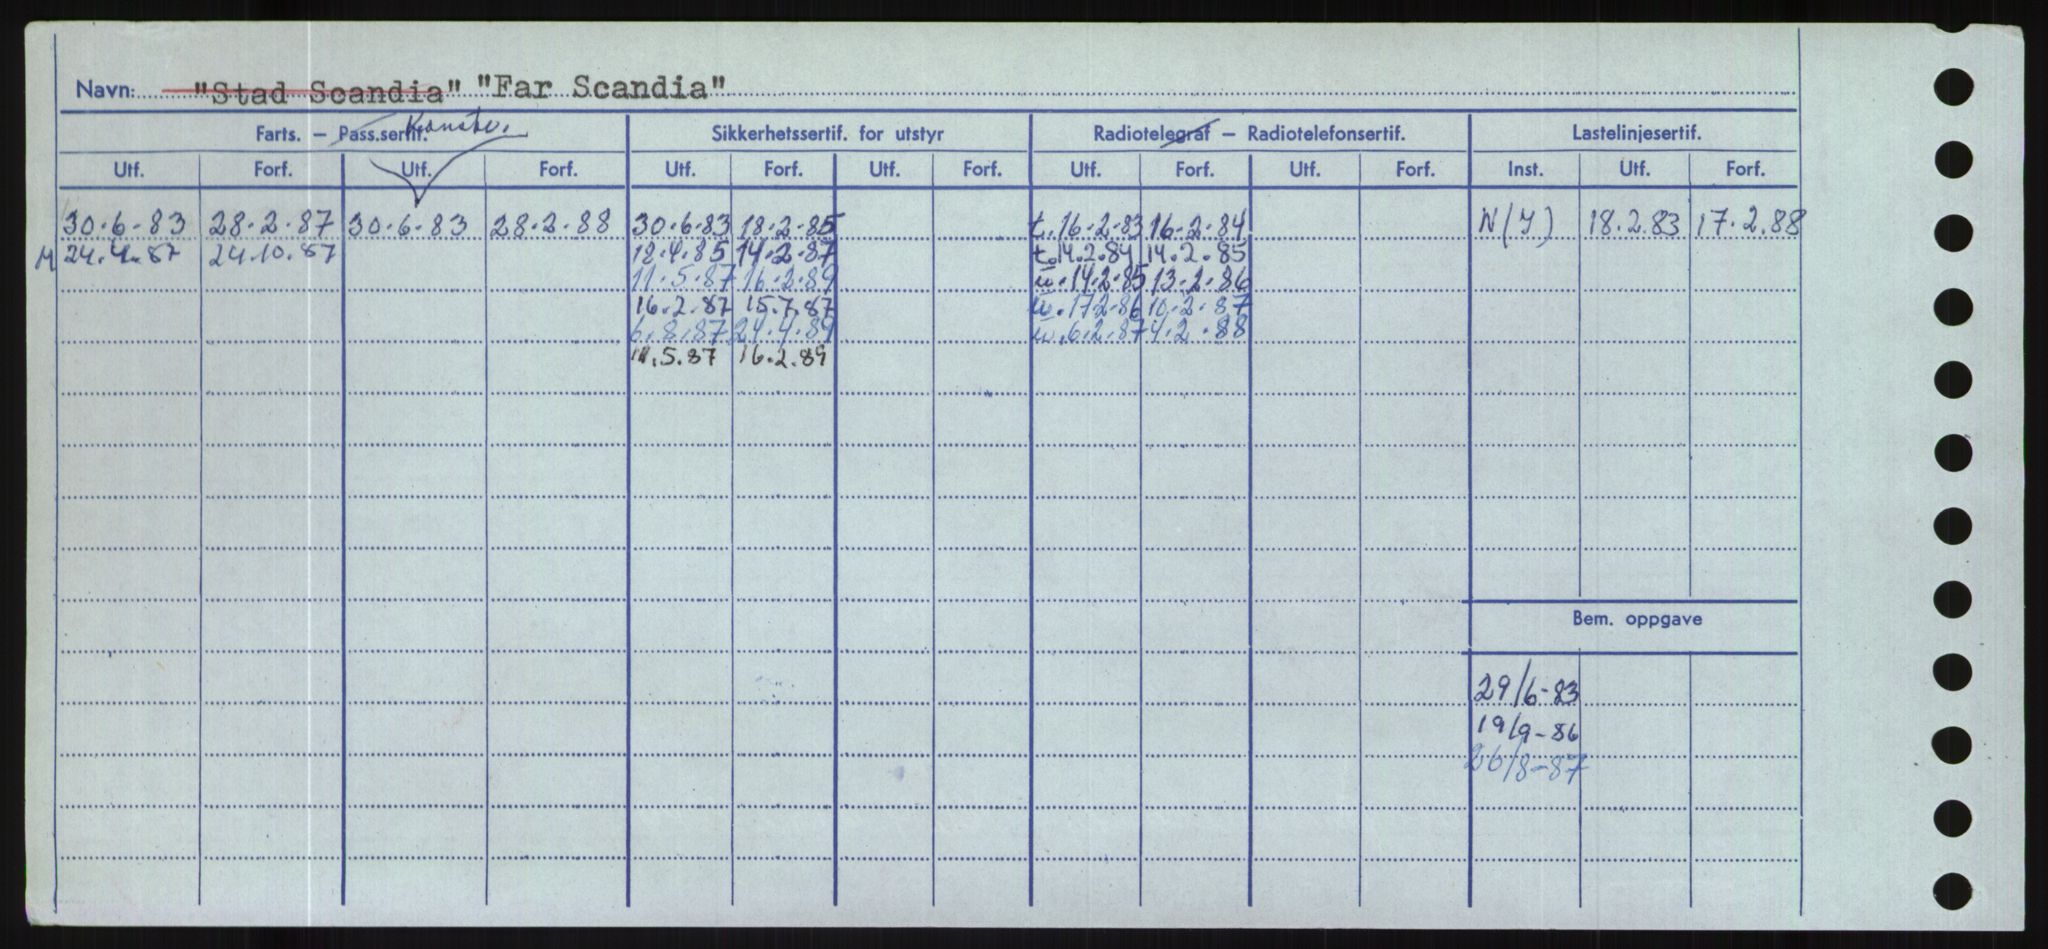 Navn: "Stad Scandia" "Far Scandia"
Konstr.
Farts. – Pass.sertif. Sikkerhetssertif. for utstyr Radiotelegraf – Radiotelefonsertif. Lastelinjesertif.
Utf. Forf. Utf. Forf. Utf. Forf. Utf. Forf. Utf. Forf. Utf. Forf. Inst. Utf. Forf.
30.6.83 28.2.87 30.6.83 28.2.88 30.6.83 18.2.85 t.16.2.83 16.2.84 N(Y) 18.2.83 17.2.88
M 24.4.87 24.10.87 18.4.85 14.2.87 t.14.2.84 14.2.85
11.5.87 16.2.89 w.14.2.85 13.2.86
16.2.87 15.7.87 w.17.2.86 10.2.87
6.8.87 24.4.89 w.6.2.87 4.2.88
11.5.87 16.2.89
Bem. oppgave
29/6-83
19/9-86
26/8-87